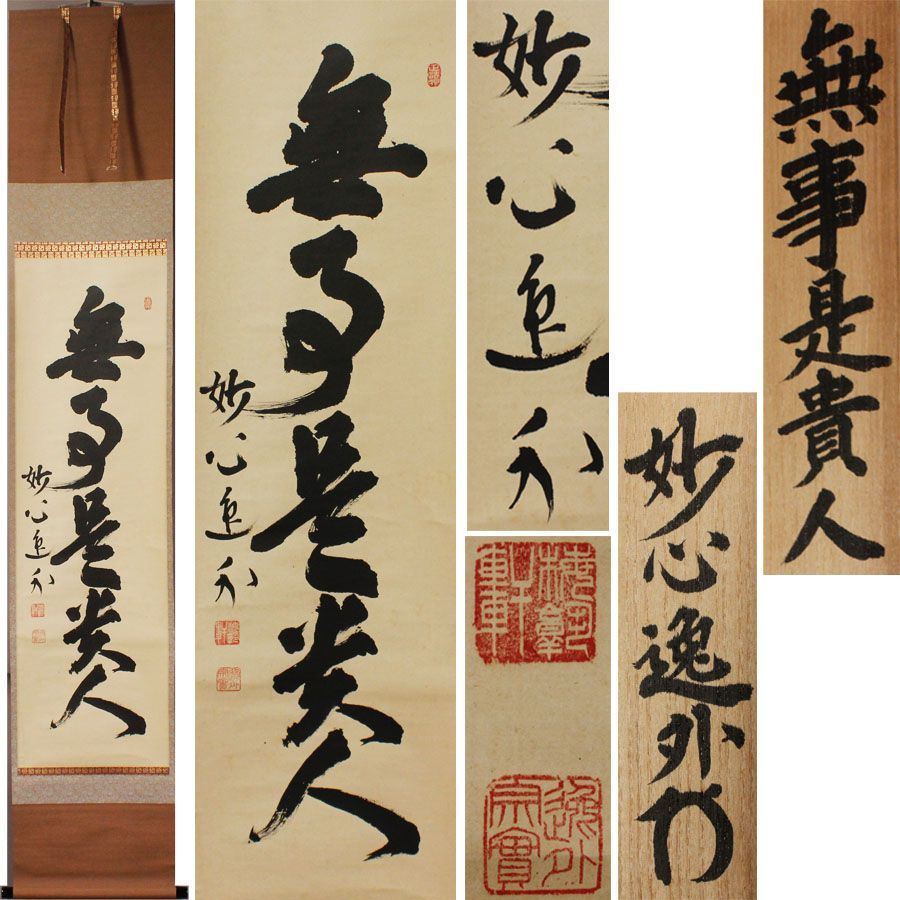 無事是貴人
妙心逸外
無事是貴人
妙心逸外
妙心逸外
軒
逸外
宗實
妙心逸外
無事是貴人